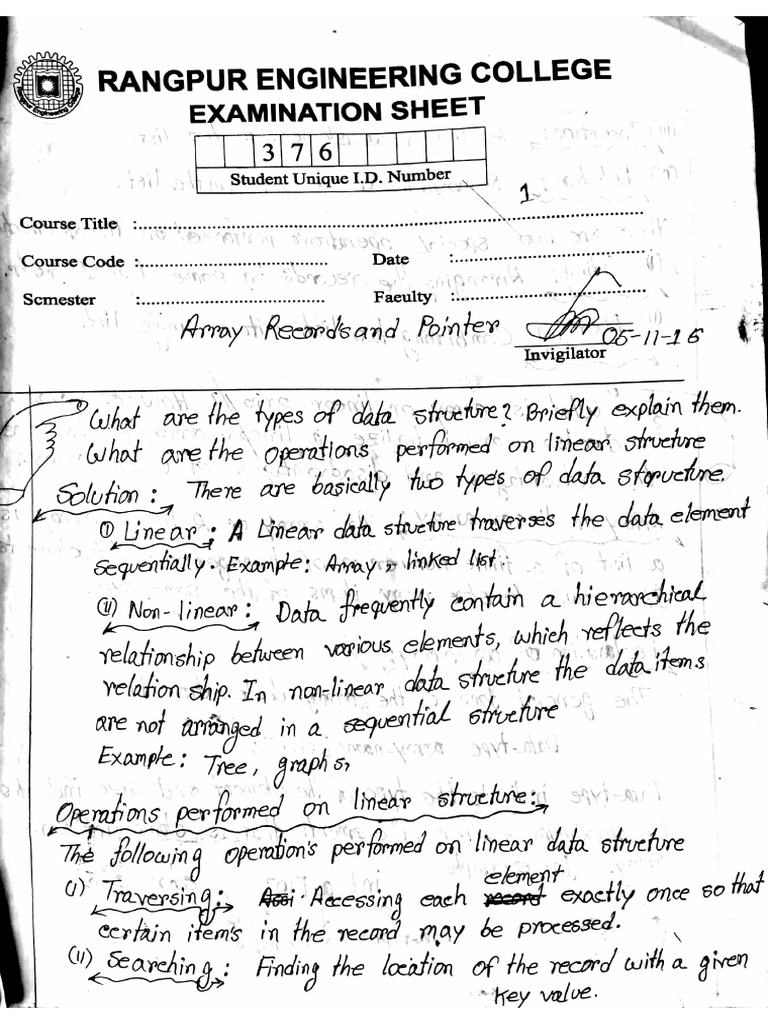 RANGPUR ENGINEERING COLLEGE
Rangpur Engineering College
EXAMINATION SHEET
3 7 6
Student Unique I.D. Number
1
Course Title :
Course Code : Date :
Semester : Faculty :
Array Records and Pointer
05-11-16
Invigilator
What are the types of data structure? Briefly explain them.
What are the operations performed on linear structure
Solution: There are basically two types of data structure.
(i) Linear: A Linear data structure traverses the data element
sequentially. Example: Array, linked list
(ii) Non-linear: Data frequently contain a hierarchical
relationship between various elements, which reflects the
relation ship. In non-linear data structure the data items
are not arranged in a sequential structure
Example: Tree, graphs,
Operations performed on linear structure:
The following operation's performed on linear data structure
(i) Traversing: Accessing each element exactly once so that
certain item's in the record may be processed.
(ii) Searching: Finding the location of the record with a given
key value.